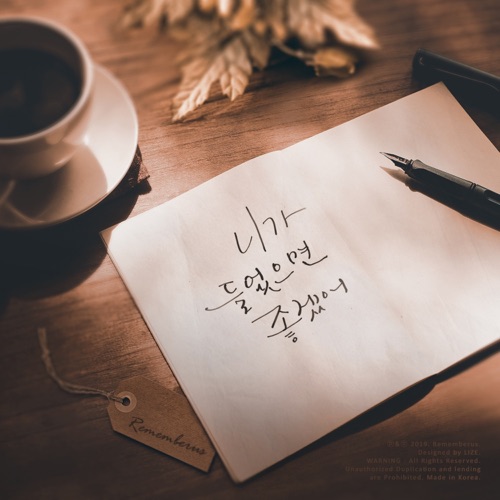 니가
들었으면
좋겠어
Rememberus
Rememberus.
Designed by
WARNING : All Rights Reserved.
Unauthorized Duplication and lending
are Prohibited. Made in Korea.